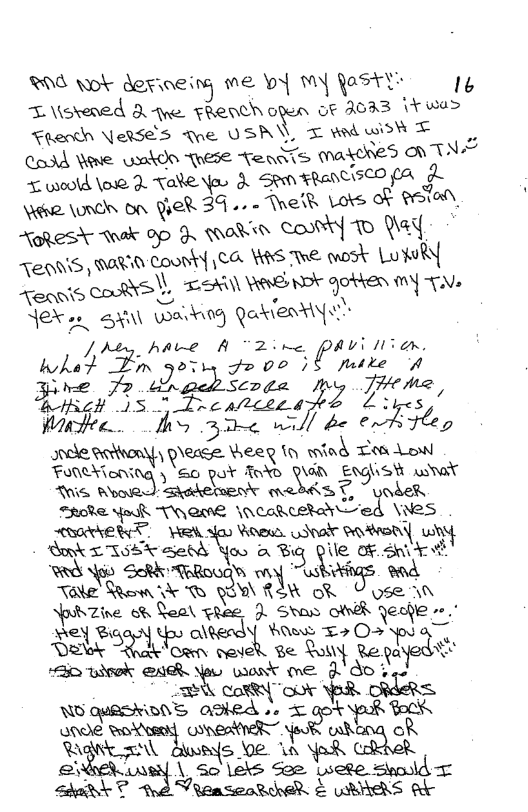 And Not defineing me by my past!!!
16
I listened 2 the French open of 2023 it was
French Verse's the USA!! I HAD wisH I
Could HAve watch these tennis matches on T.V.
I would love 2 take you 2 SAN FRANCISCO, ca 2
HAve lunch on pieR 39... TheiR Lots of Asian
ToRest that go 2 maRin county to play
Tennis, maRin county, ca HAs The most LuxuRy
Tennis couRts!! I still HAve Not gotten my T.V.
yet.. still waiting patiently!!!
They have A "zine pavillion.
What I'm going to do is make A
zine to underscore my THEME,
WHICH is "Incarcerated Lives
Matter. My zine will be entitled
uncle Anthony, please Keep in mind I'm Low
Functioning, so put into plain EnglisH what
this Above statement means? undeR
scoRe youR Theme incarcerated lives
matteR? Hell you Know what Anthony why
dont I Just send you a Big pile of sHit!!!
And you SoRt ThRough my wRitings And
Take fRom it To publisH oR use in
youR Zine oR feel FRee 2 show otheR people...
Hey Bigguy you alReady Know I → O → you a
Debt that can neveR Be fully Repayed!!!
so what eveR you want me 2 do...
I'll caRRy out youR oRdeRs
NO question's asked.. I got youR Back
uncle Anthony wheatheR youR wRong oR
Right I'll always be in youR coRneR
eitheR way! so Lets see weRe should I
staRt? The ReaseaRcheR & wRiteRs At